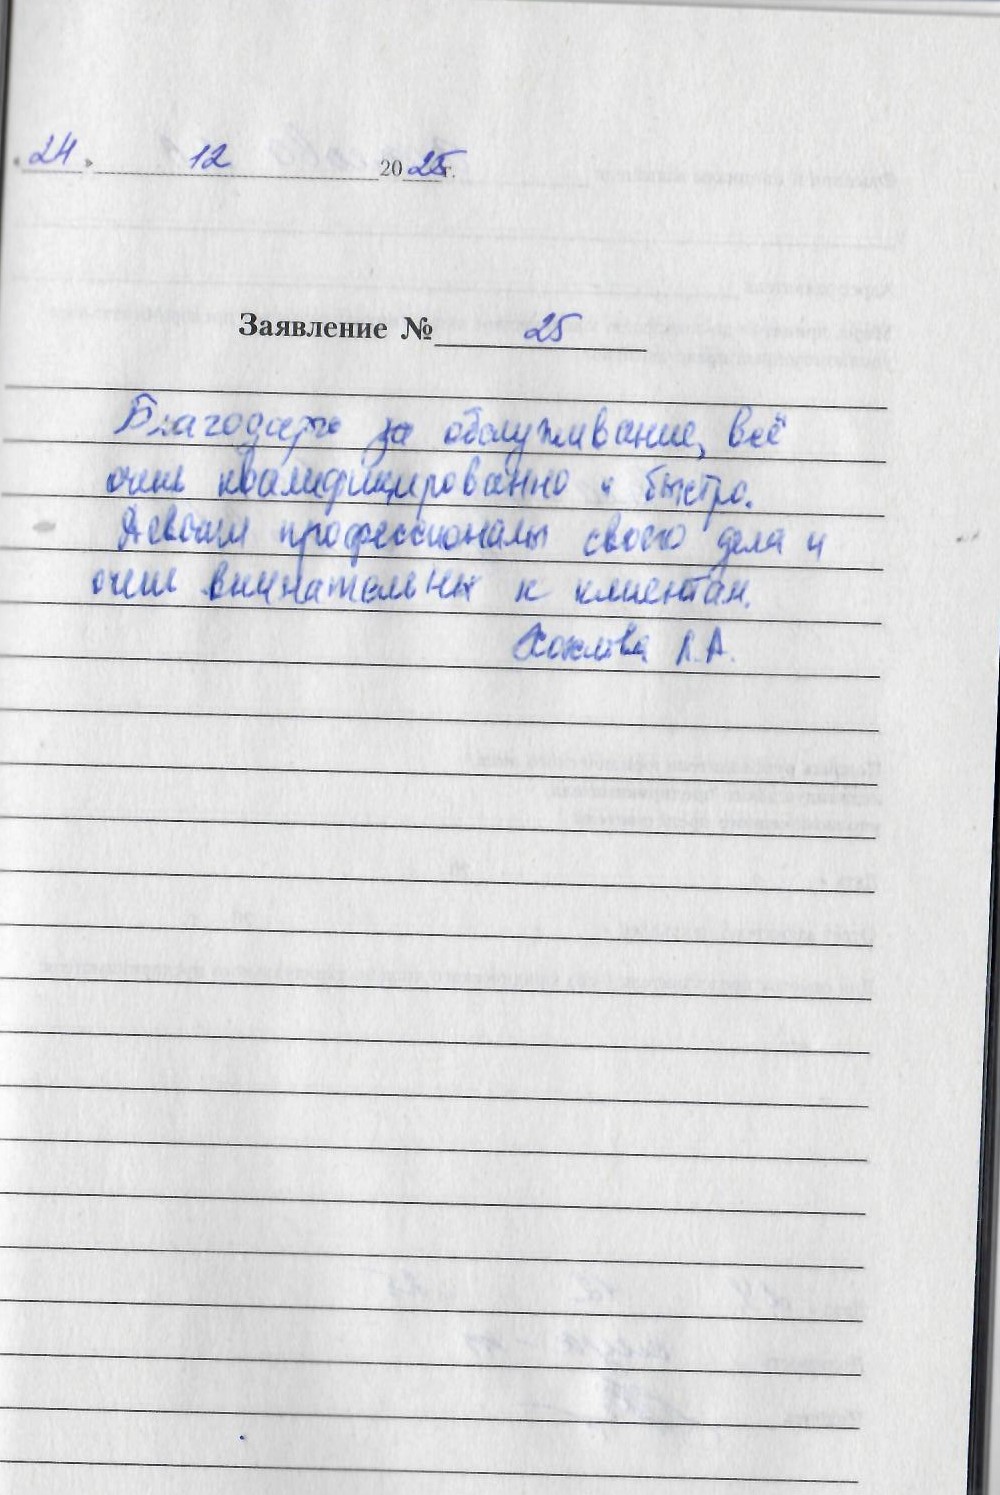 « 24 » 12 2025г.
Заявление № 25
Благодарю за обслуживание, всё
очень квалифицированно и быстро.
Девочки профессионалы своего дела и
очень внимательны к клиентам.
Л.А.